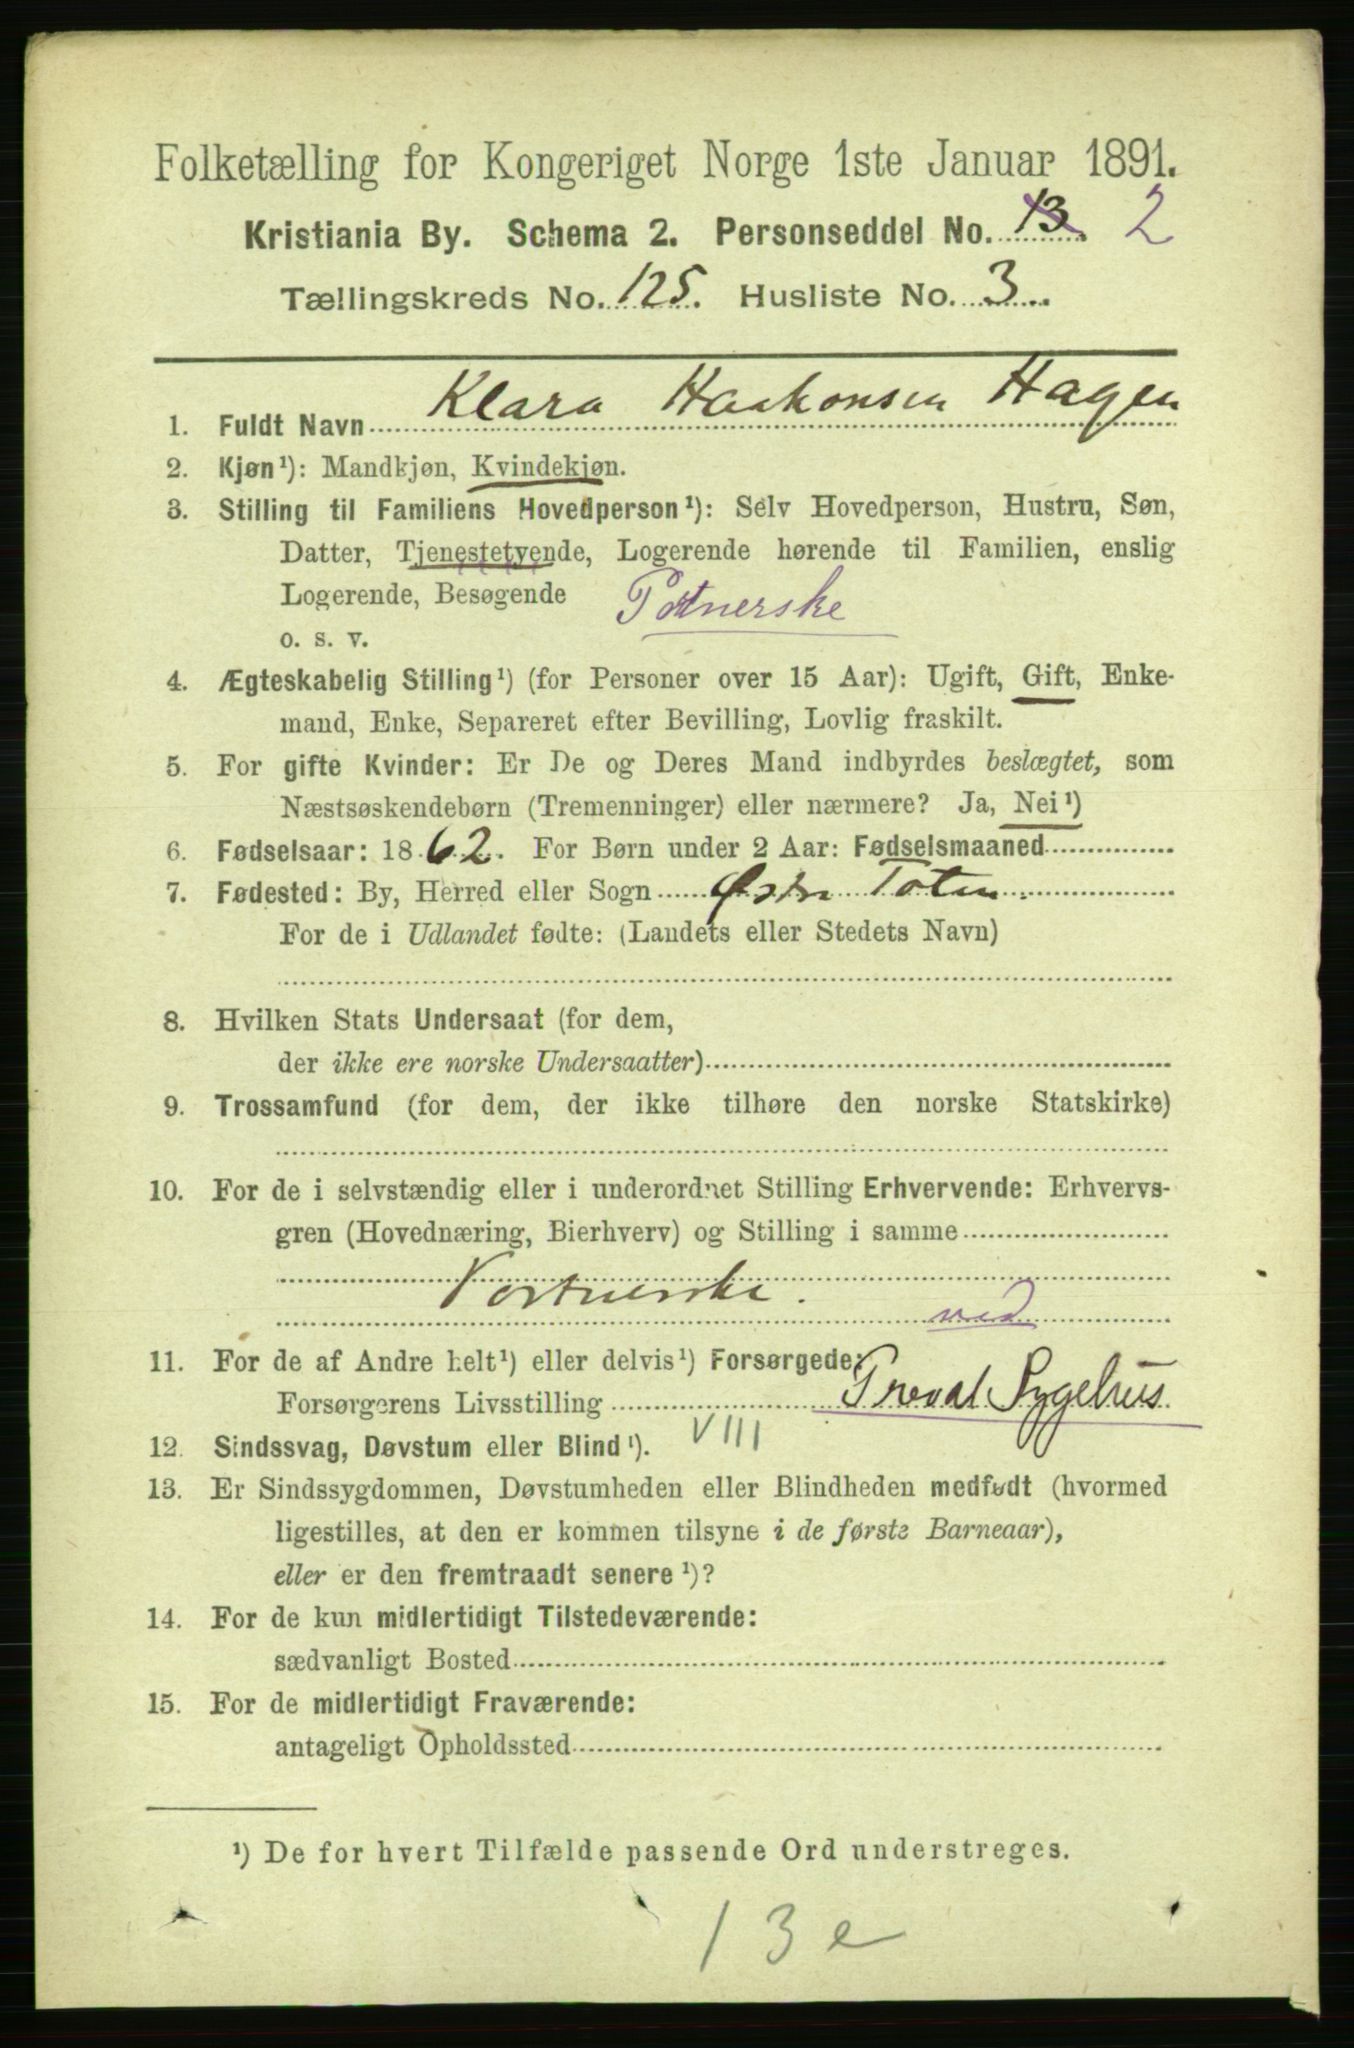 Folketælling for Kongeriget Norge 1ste Januar 1891.
Kristiania By. Schema 2. Personseddel No. 13. 2
Tællingskreds No. 125. Husliste No. 3
1. Fuldt Navn Klara Haakonsen Hagen
2. Kjøn¹): Mandkjøn, Kvindekjøn.
3. Stilling til Familiens Hovedperson¹): Selv Hovedperson, Hustru, Søn,
Datter, Tjenestetyende, Logerende hørende til Familien, enslig
Logerende, Besøgende Portnerske
o. s. v.
4. Ægteskabelig Stilling¹) (for Personer over 15 Aar): Ugift, Gift, Enke-
mand, Enke, Separeret efter Bevilling, Lovlig fraskilt.
5. For gifte Kvinder: Er De og Deres Mand indbyrdes beslægtet, som
Næstsøskendebørn (Tremenninger) eller nærmere? Ja, Nei¹)
6. Fødselsaar: 1862. For Børn under 2 Aar: Fødselsmaaned
7. Fødested: By, Herred eller Sogn Østre Toten.
For de i Udlandet fødte: (Landets eller Stedets Navn)
8. Hvilken Stats Undersaat (for dem,
der ikke ere norske Undersaatter)
9. Trossamfund (for dem, der ikke tilhøre den norske Statskirke)
10. For de i selvstændig eller i underordnet Stilling Erhvervende: Erhvervs-
gren (Hovednæring, Bierhverv) og Stilling i samme
Portnerske. ved
11. For de af Andre helt¹) eller delvis¹) Forsørgede:
Forsørgerens Livsstilling Privat Sygehus.
12. Sindssvag, Døvstum eller Blind¹). VIII
13. Er Sindssygdommen, Døvstumheden eller Blindheden medfødt (hvormed
ligestilles, at den er kommen tilsyne i de første Barneaar),
eller er den fremtraadt senere¹)?
14. For de kun midlertidigt Tilstedeværende:
sædvanligt Bosted
15. For de midlertidigt Fraværende:
antageligt Opholdssted
¹) De for hvert Tilfælde passende Ord understreges.
13 e